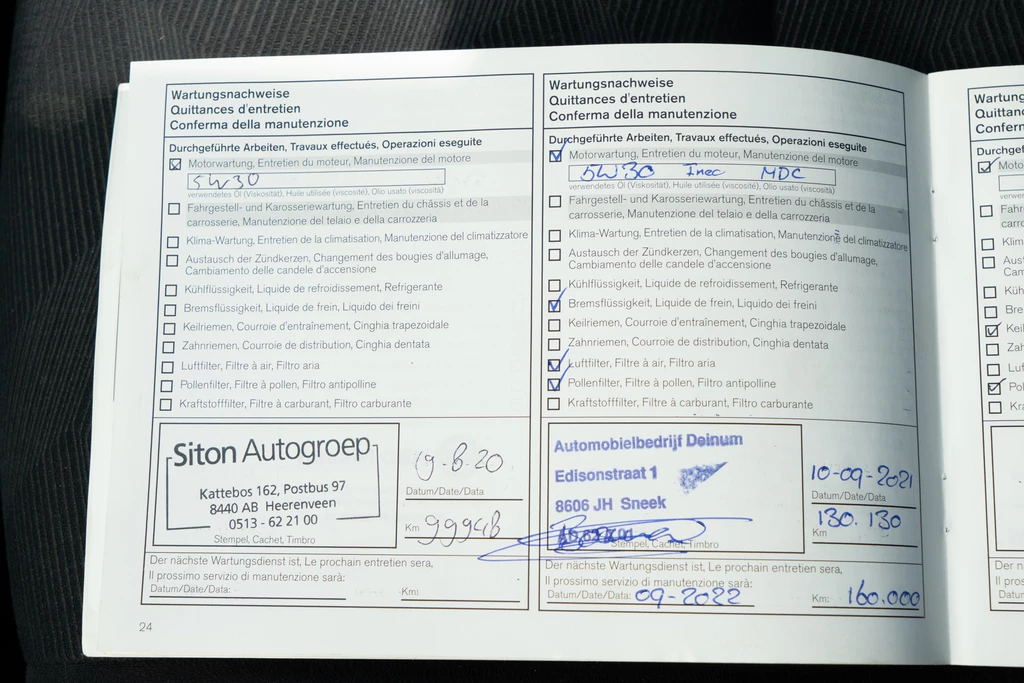 Wartungsnachweise
Quittances d'entretien
Conferma della manutenzione
Durchgeführte Arbeiten, Travaux effectués, Operazioni eseguite
Motorwartung, Entretien du moteur, Manutenzione del motore
5W30
verwendetes Öl (Viskosität), Huile utilisée (viscosité), Olio usato (viscosità)
Fahrgestell- und Karosseriewartung, Entretien du châssis et de la
carrosserie, Manutenzione del telaio e della carrozzeria
Klima-Wartung, Entretien de la climatisation, Manutenzione del climatizzatore
Austausch der Zündkerzen, Changement des bougies d'allumage,
Cambiamento delle candele d'accensione
Kühlflüssigkeit, Liquide de refroidissement, Refrigerante
Bremsflüssigkeit, Liquide de frein, Liquido dei freini
Keilriemen, Courroie d'entraînement, Cinghia trapezoidale
Zahnriemen, Courroie de distribution, Cinghia dentata
Luftfilter, Filtre à air, Filtro aria
Pollenfilter, Filtre à pollen, Filtro antipolline
Kraftstofffilter, Filtre à carburant, Filtro carburante
Siton Autogroep
Kattebos 162, Postbus 97
8440 AB Heerenveen
0513 - 62 21 00
Stempel, Cachet, Timbro
19-8-20
Datum/Date/Data
Km 99948
Der nächste Wartungsdienst ist, Le prochain entretien sera,
Il prossimo servizio di manutenzione sarà:
Datum/Date/Data:
Km:
24
Wartungsnachweise
Quittances d'entretien
Conferma della manutenzione
Durchgeführte Arbeiten, Travaux effectués, Operazioni eseguite
Motorwartung, Entretien du moteur, Manutenzione del motore
5W30 Inec MDC
verwendetes Öl (Viskosität), Huile utilisée (viscosité), Olio usato (viscosità)
Fahrgestell- und Karosseriewartung, Entretien du châssis et de la
carrosserie, Manutenzione del telaio e della carrozzeria
Klima-Wartung, Entretien de la climatisation, Manutenzione del climatizzatore
Austausch der Zündkerzen, Changement des bougies d'allumage,
Cambiamento delle candele d'accensione
Kühlflüssigkeit, Liquide de refroidissement, Refrigerante
Bremsflüssigkeit, Liquide de frein, Liquido dei freini
Keilriemen, Courroie d'entraînement, Cinghia trapezoidale
Zahnriemen, Courroie de distribution, Cinghia dentata
Luftfilter, Filtre à air, Filtro aria
Pollenfilter, Filtre à pollen, Filtro antipolline
Kraftstofffilter, Filtre à carburant, Filtro carburante
Automobielbedrijf Deinum
Edisonstraat 1
8606 JH Sneek
Stempel, Cachet, Timbro
10-09-2021
Datum/Date/Data
130.130
Km
Der nächste Wartungsdienst ist, Le prochain entretien sera,
Il prossimo servizio di manutenzione sarà:
Datum/Date/Data: 09-2022
Km: 160.000